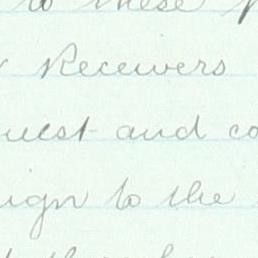 to these
Receivers
uest and co
ign to the